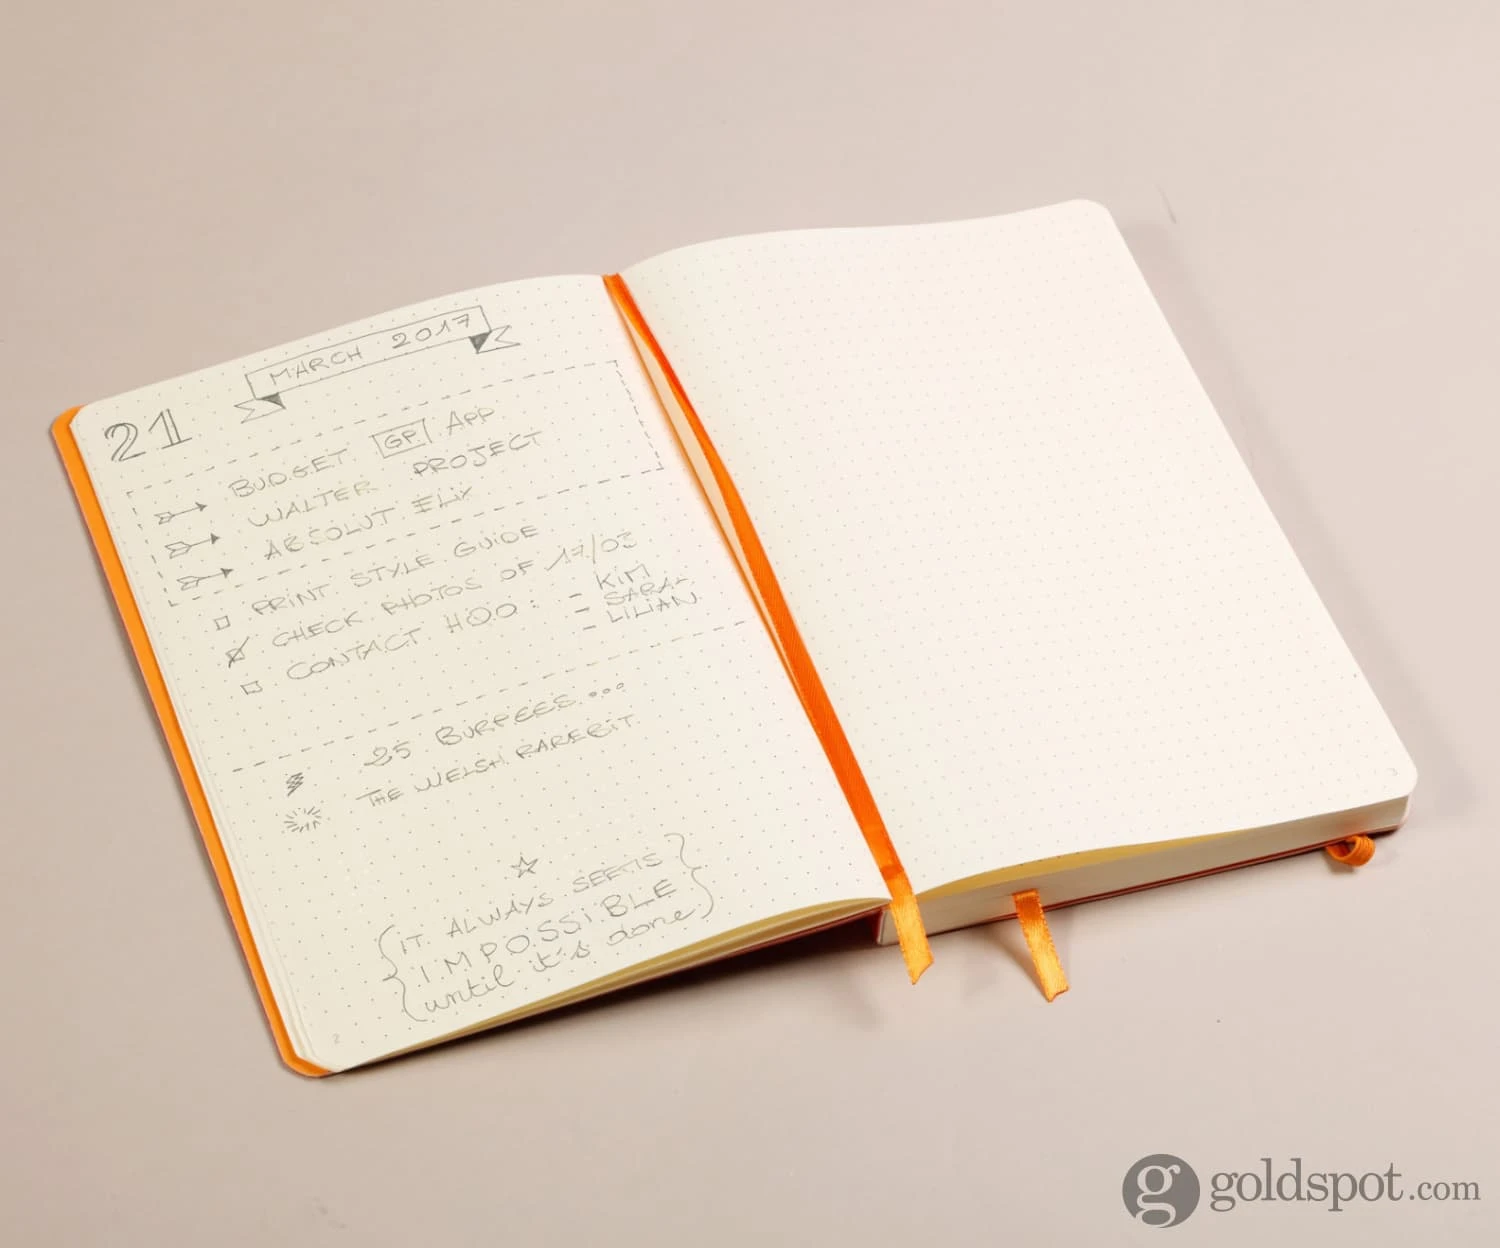 MARCH 2017
21
BUDGET GP APP
WALTER PROJECT
ABSOLUT ELIX
PRINT STYLE GUIDE
CHECK PHOTOS OF 17/03
CONTACT HOO: - KIM
- SARAH
- LILIAN
25 BURPEES...
THE WELSH RAREBIT
IT ALWAYS SEEMS
IMPOSSIBLE
until it's done
2
3
g goldspot.com